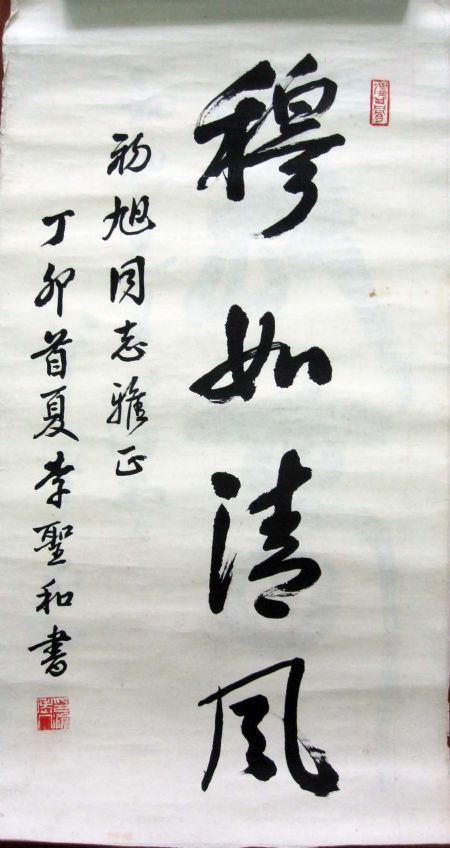 穆如清风
初旭同志雅正
丁卯首夏李聖和书